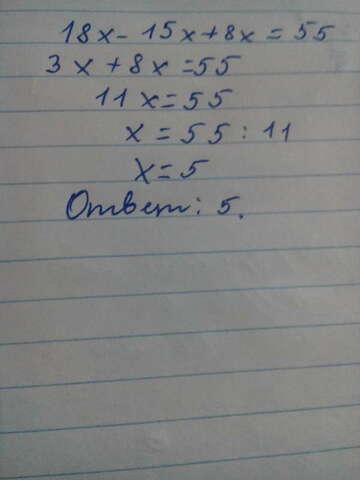 18x - 15x + 8x = 55
3x + 8x = 55
11x = 55
x = 55 : 11
x = 5
Ответ: 5.